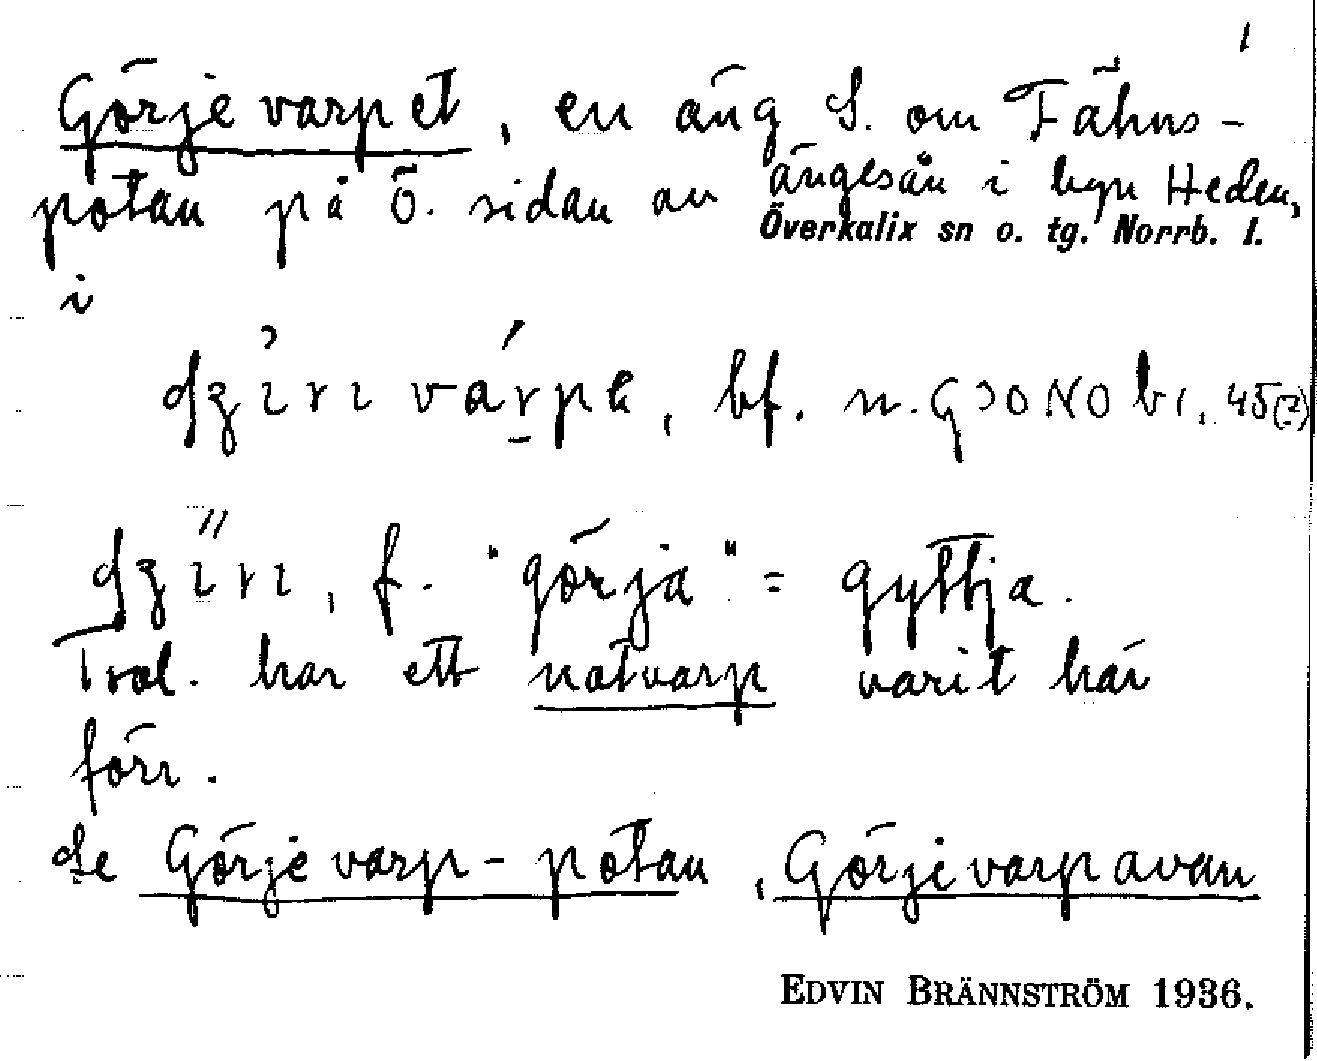 1
Görjevarpet, en äng S. om Fähns-
potan på Ö. sidan av Ängesån i byn Heden,
Överkalix sn o. tg. Norrb. l.
i
bf. n.
f. "görja" = gyttja.
Trol. har ett notvarp varit här
förr.
Se Görjevarp-potan, Görjevarpavan
EDVIN BRÄNNSTRÖM 1936.